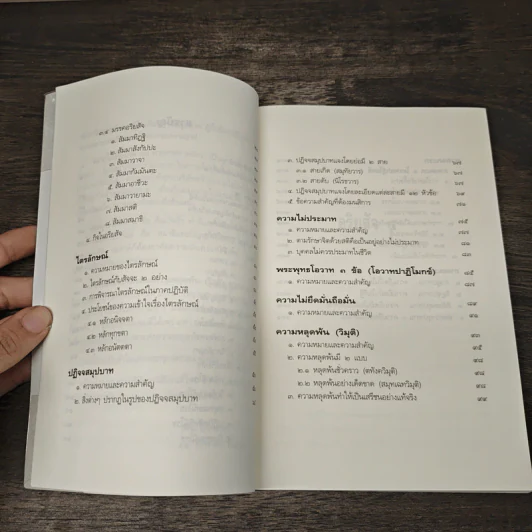 ๓.๔ มรรคอริยสัจ
๑. สัมมาทิฏฐิ
๒. สัมมาสังกัปปะ
๓. สัมมาวาจา
๔. สัมมากัมมันตะ
๕. สัมมาอาชีวะ
๖. สัมมาวายามะ
๗. สัมมาสติ
๘. สัมมาสมาธิ
๔. กิจในอริยสัจ
ไตรลักษณ์
๑. ความหมายของไตรลักษณ์
๒. ไตรลักษณ์กับสัจจะ ๒ อย่าง
๓. การพิจารณาไตรลักษณ์ในภาคปฏิบัติ
๔. ประโยชน์ของความเข้าใจเรื่องไตรลักษณ์
๔.๑ หลักอนิจจตา
๔.๒ หลักทุกขตา
๔.๓ หลักอนัตตตา
ปฏิจจสมุปบาท
๑. ความหมายและความสำคัญ
๒. สิ่งต่างๆ ปรากฏในรูปของปฏิจจสมุปบาท
๓. ปฏิจจสมุปบาทแจงโดยย่อมี ๒ สาย ๖๗
๓.๑ สายเกิด (สมุทัยวาร) ๖๗
๓.๒ สายดับ (นิโรธวาร) ๖๘
๔. ปฏิจจสมุปบาทแจงโดยละเอียดแต่ละสายมี ๑๒ หัวข้อ ๖๙
๕. ข้อความสำคัญที่ต้องมนสิการ ๗๒
ความไม่ประมาท ๗๕
๑. ความหมายและความสำคัญ ๗๗
๒. ตามรักษาจิตด้วยสติคือเป็นอยู่อย่างไม่ประมาท
๓. บุคคลไม่ควรประมาทในชีวิต
พระพุทธโอวาท ๓ ข้อ (โอวาทปาฏิโมกข์)
๑. ความหมายและความสำคัญ
ความไม่ยึดมั่นถือมั่น ๘๙
๑. ความหมายและความสำคัญ
ความหลุดพ้น (วิมุติ) ๙๓
๑. ความหมายและความสำคัญ ๙๕
๒. ความหลุดพ้นมี ๒ แบบ ๙๘
๒.๑ หลุดพ้นชั่วคราว (ตทังควิมุติ) ๙๘
๒.๒ หลุดพ้นอย่างเด็ดขาด (สมุทเฉทวิมุติ) ๙๘
๓. ความหลุดพ้นทำให้เป็นเสรีชนอย่างแท้จริง ๙๙